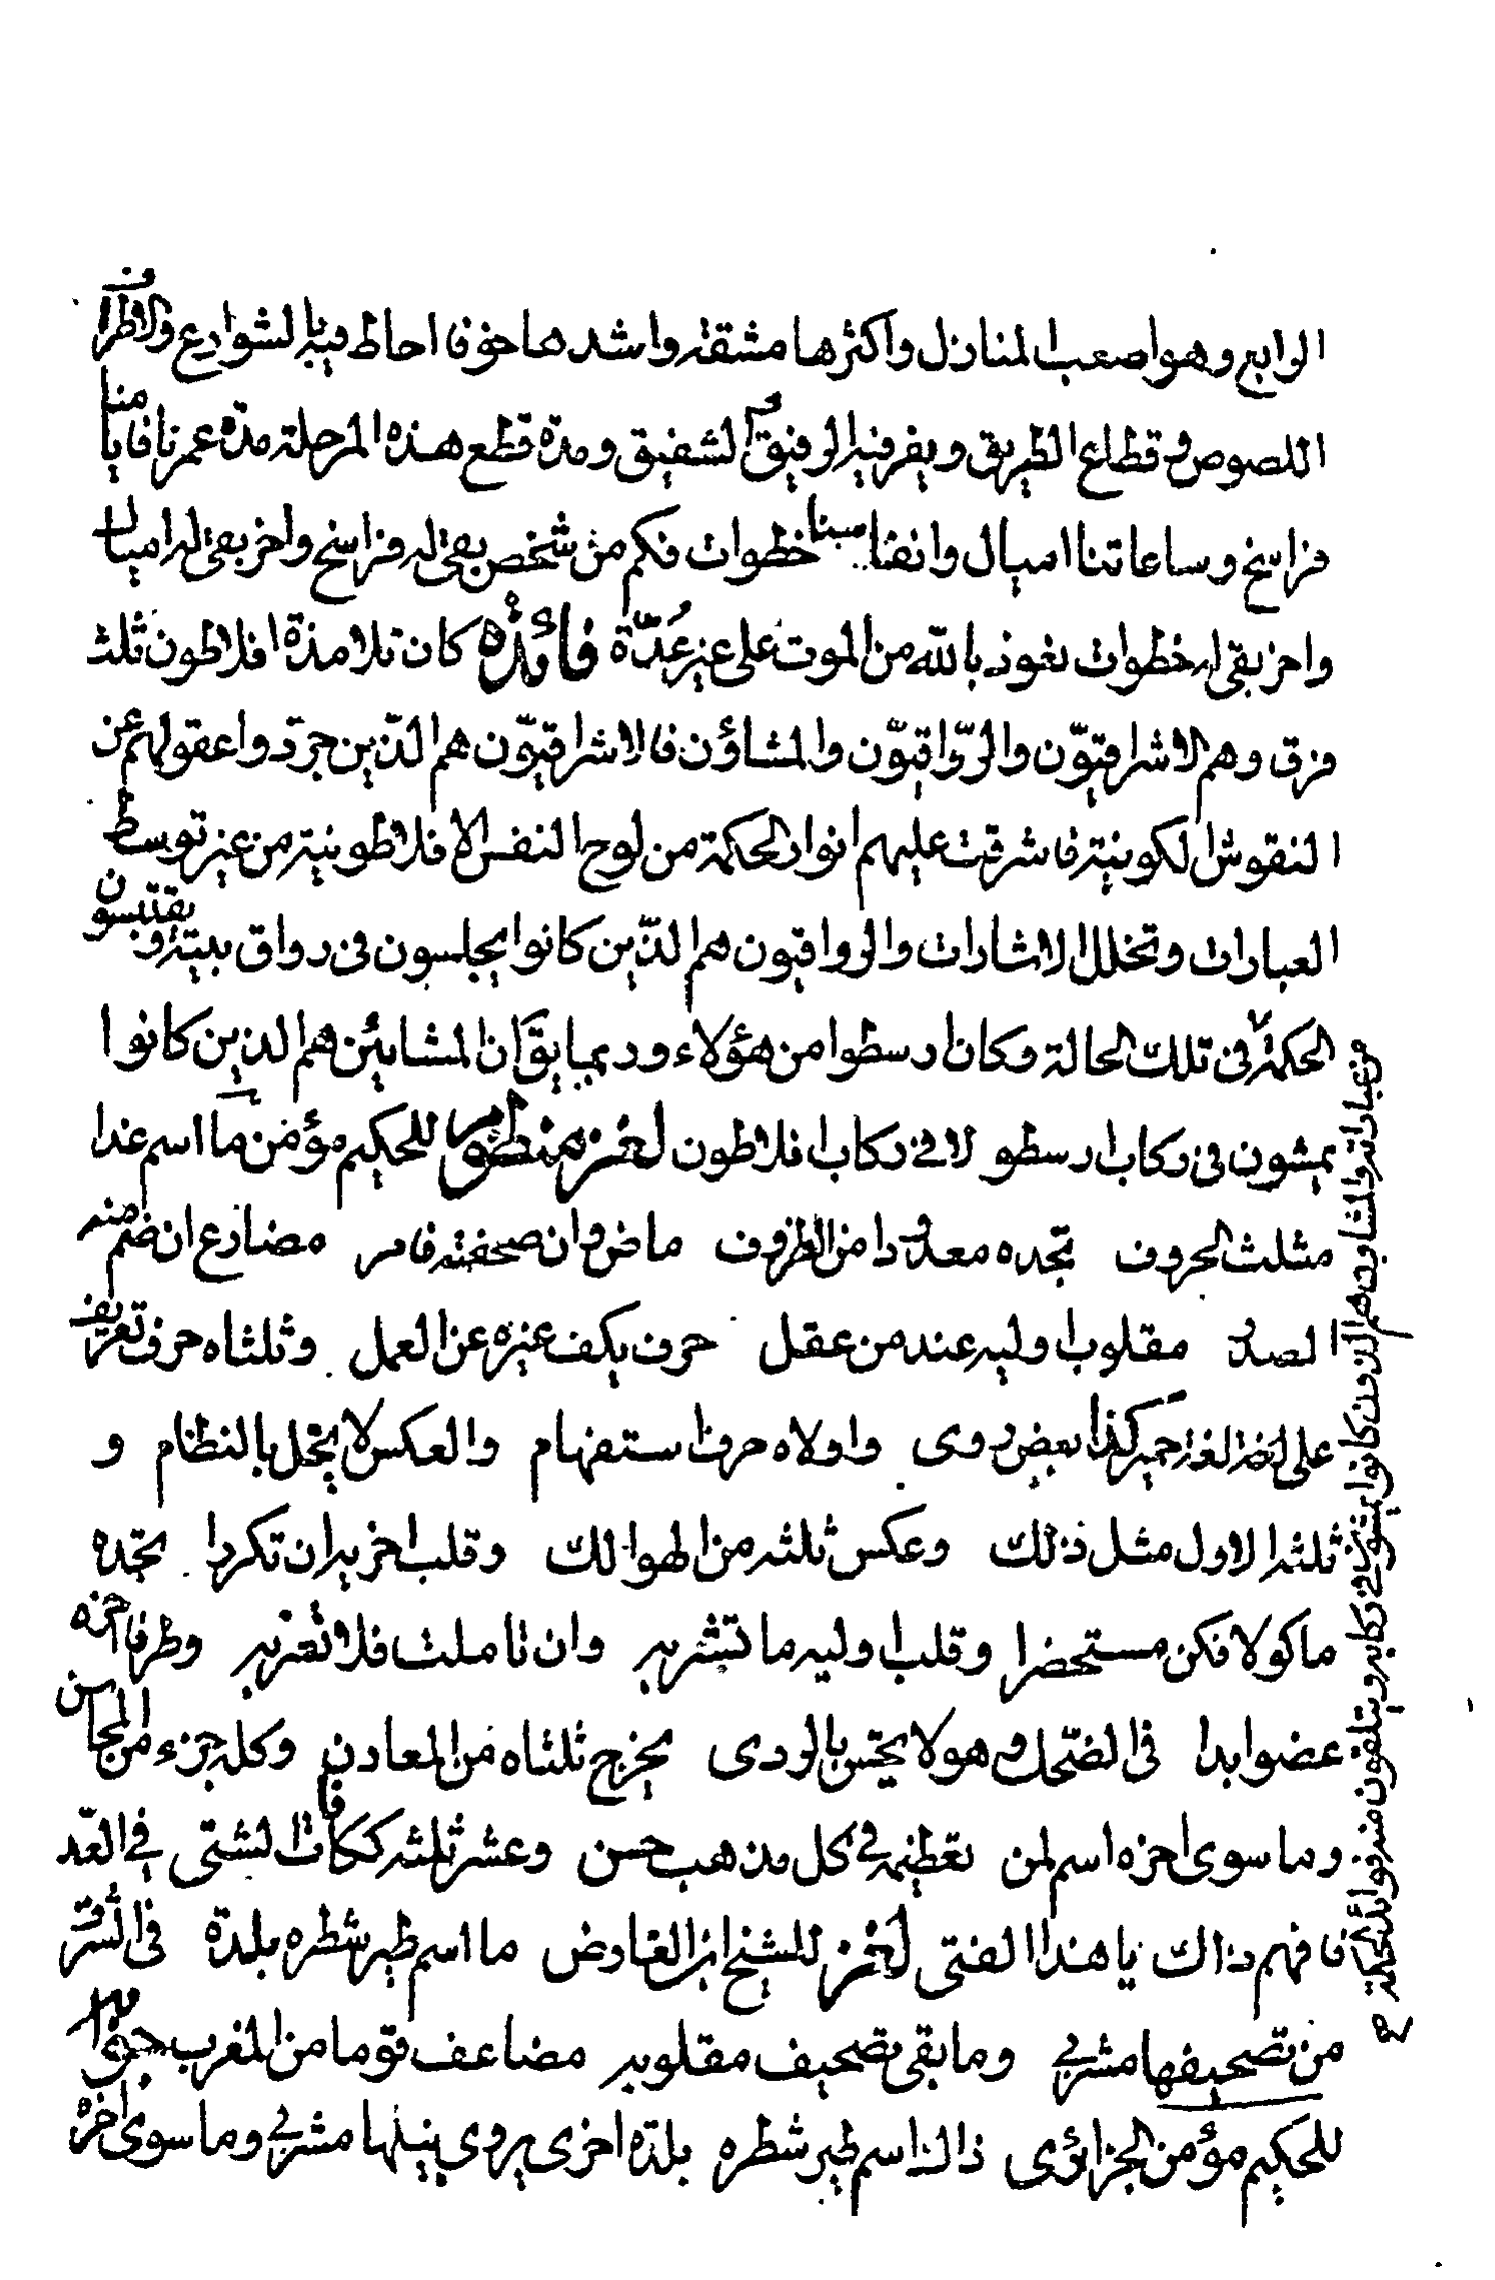 الرابع وهو اصعب المنازل واكثرها مشقة واشدها خوفا احاط فيه الشوارع والاطراف
اللصوص و قطاع الطريق ويفر فيه الرفيق و الشفيق ومدة قطع هذه المرحلة مدة عمرنا فايامنا
فراسخ وساعاتنا اميال وانفاسنا خطوات فكم من شخص بقى له فراسخ واخر بقى له اميال
واخر بقى له خطوات نعوذ بالله من الموت على غير عُدّة فائدة كان تلامذة افلاطون ثلث
فرق وهم الاشراقيّون والرّواقيّون والمشاؤن فالاشراقيّون هم الذّين جرّدوا عقولهم عن
النقوش الكونية فاشرقت عليهم انوار الحكمة من لوح النفس الافلاطونية من غير توسط
العبارات وتخلل الاشارات والرواقيون هم الذّين كانوا يجلسون فى رواق بيته و يقتبسون
الحكمة فى تلك الحالة وكان ارسطوا من هؤلاء وربما يقَ ان المشايئن هم الذين كانوا
يمشون فى ركاب ارسطو لا فى ركاب افلاطون لغز منظوم للحكيم مؤمن ما اسم غدا
مثلث الحروف تجده معدودا من الظروف ماض وان صحفته فامر مضارع ان ضم منه
الصدر مقلوب اوليه عند من عقل حرف يكف غيره عن العمل وثلثاه حرف تعريف
على لغة لغة حمير كذا بعض روى واولاه حرفا ستفهام والعكس لا يخل بالنظام و
ثلثه الاول مثل ذلك وعكس ثلثه من الهوالك وقلب اخريه ان تكررا تجده
ماكولا فكن مستحضرا وقلب اوليه ما تبشر به وان تاملت فلا تغتر به وطرفا اخره
عضو ابدا فى الضّحك وهو لا يحتس بالردى يخرج ثلثاه من المعادن وكله جزء من المحاسن
وما سوى اخره اسم لمن تعظيمه فى كل مذهب حسن وعشر ثلثه ككافات لشتى فى العّد
فافهم ذاك يا هذا الفتى لغز للشيخ ابن الفارض ما اسم طير شطره بلدة فى الشرق
من تصحيفها مشربى وما بقى تصحيف مقلوبه مضاعف قوما من المغرب جوابه
للحكيم مؤمن الجزائرى ذاك اسم طير شطره بلدة اخرى يروى نيلها مشربى وما سوى اخره
من عباراته والمشاون هم الذين كانوا يمشون فى ركابه ويتلقون منه فوائد الحكمة